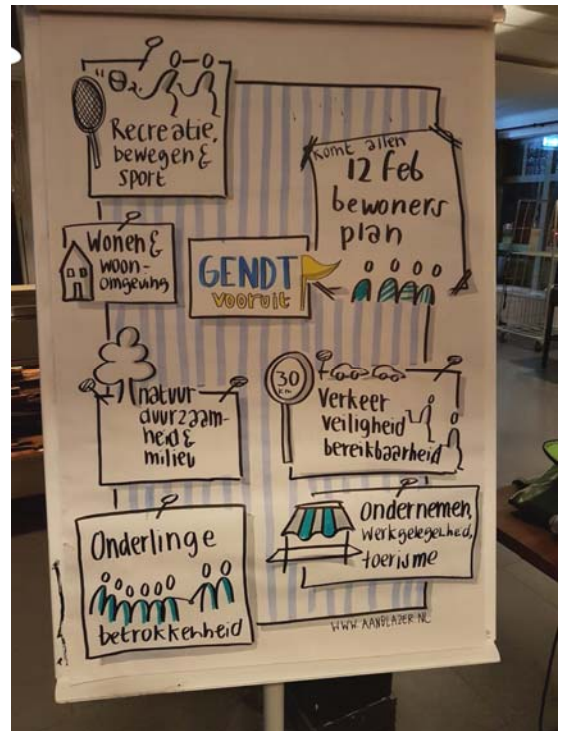 Recreatie,
bewegen &
sport
Komt allen
12 Feb
bewoners
plan
Wonen &
woon-
omgeving
GENDT
vooruit
natuur
duurzaam-
heid &
milieu
30
km
Verkeer
veiligheid
bereikbaarheid
Onderlinge
betrokkenheid
ondernemen,
werkgelegenheid,
toerisme
WWW.AANBLAZER.NL